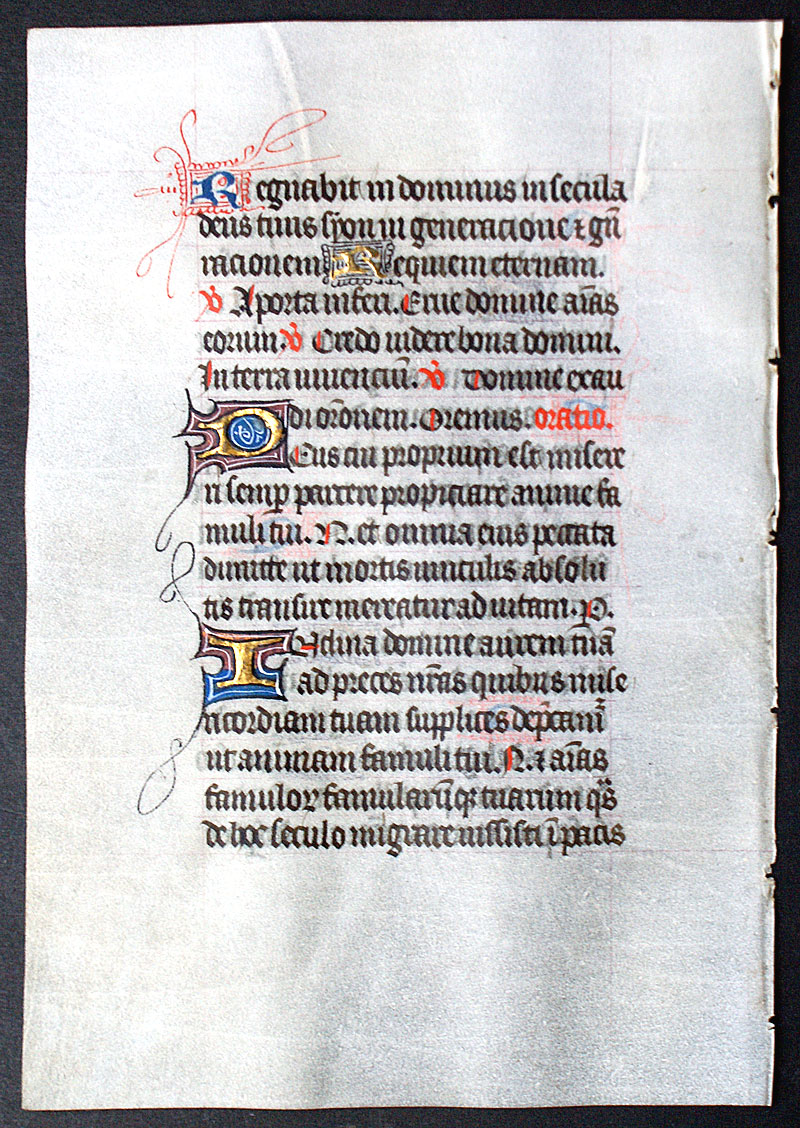 Regnabit in dominus in secula
deus tuus syon in generacione ⁊ gn̄
racionem Requiem eternam.
V̾ A porta inferi. Erue domine aīas
eorum V̾ Credo videre bona domini.
In terra viuenciū. V̾ Domine exau
di orōnem. Oremus. oratio.
Deus cui proprium est misere
ri semp̱ parcere propiciare anime fa
muli tui. N. et omnia eius peccata
dimitte ut mortis uinculis absolu
tis transire mereatur ad uitam. P.
Inclina domine aurem tuā
ad preces nr̄as quibus mise
ricordiam tuam supplices dep̄camꝰ
ut animam famuli tui. N. ⁊ aīas
famuloꝝ famularūqꝫ tuarum qͣs
de hoc seculo migrare iussisti ī pacis